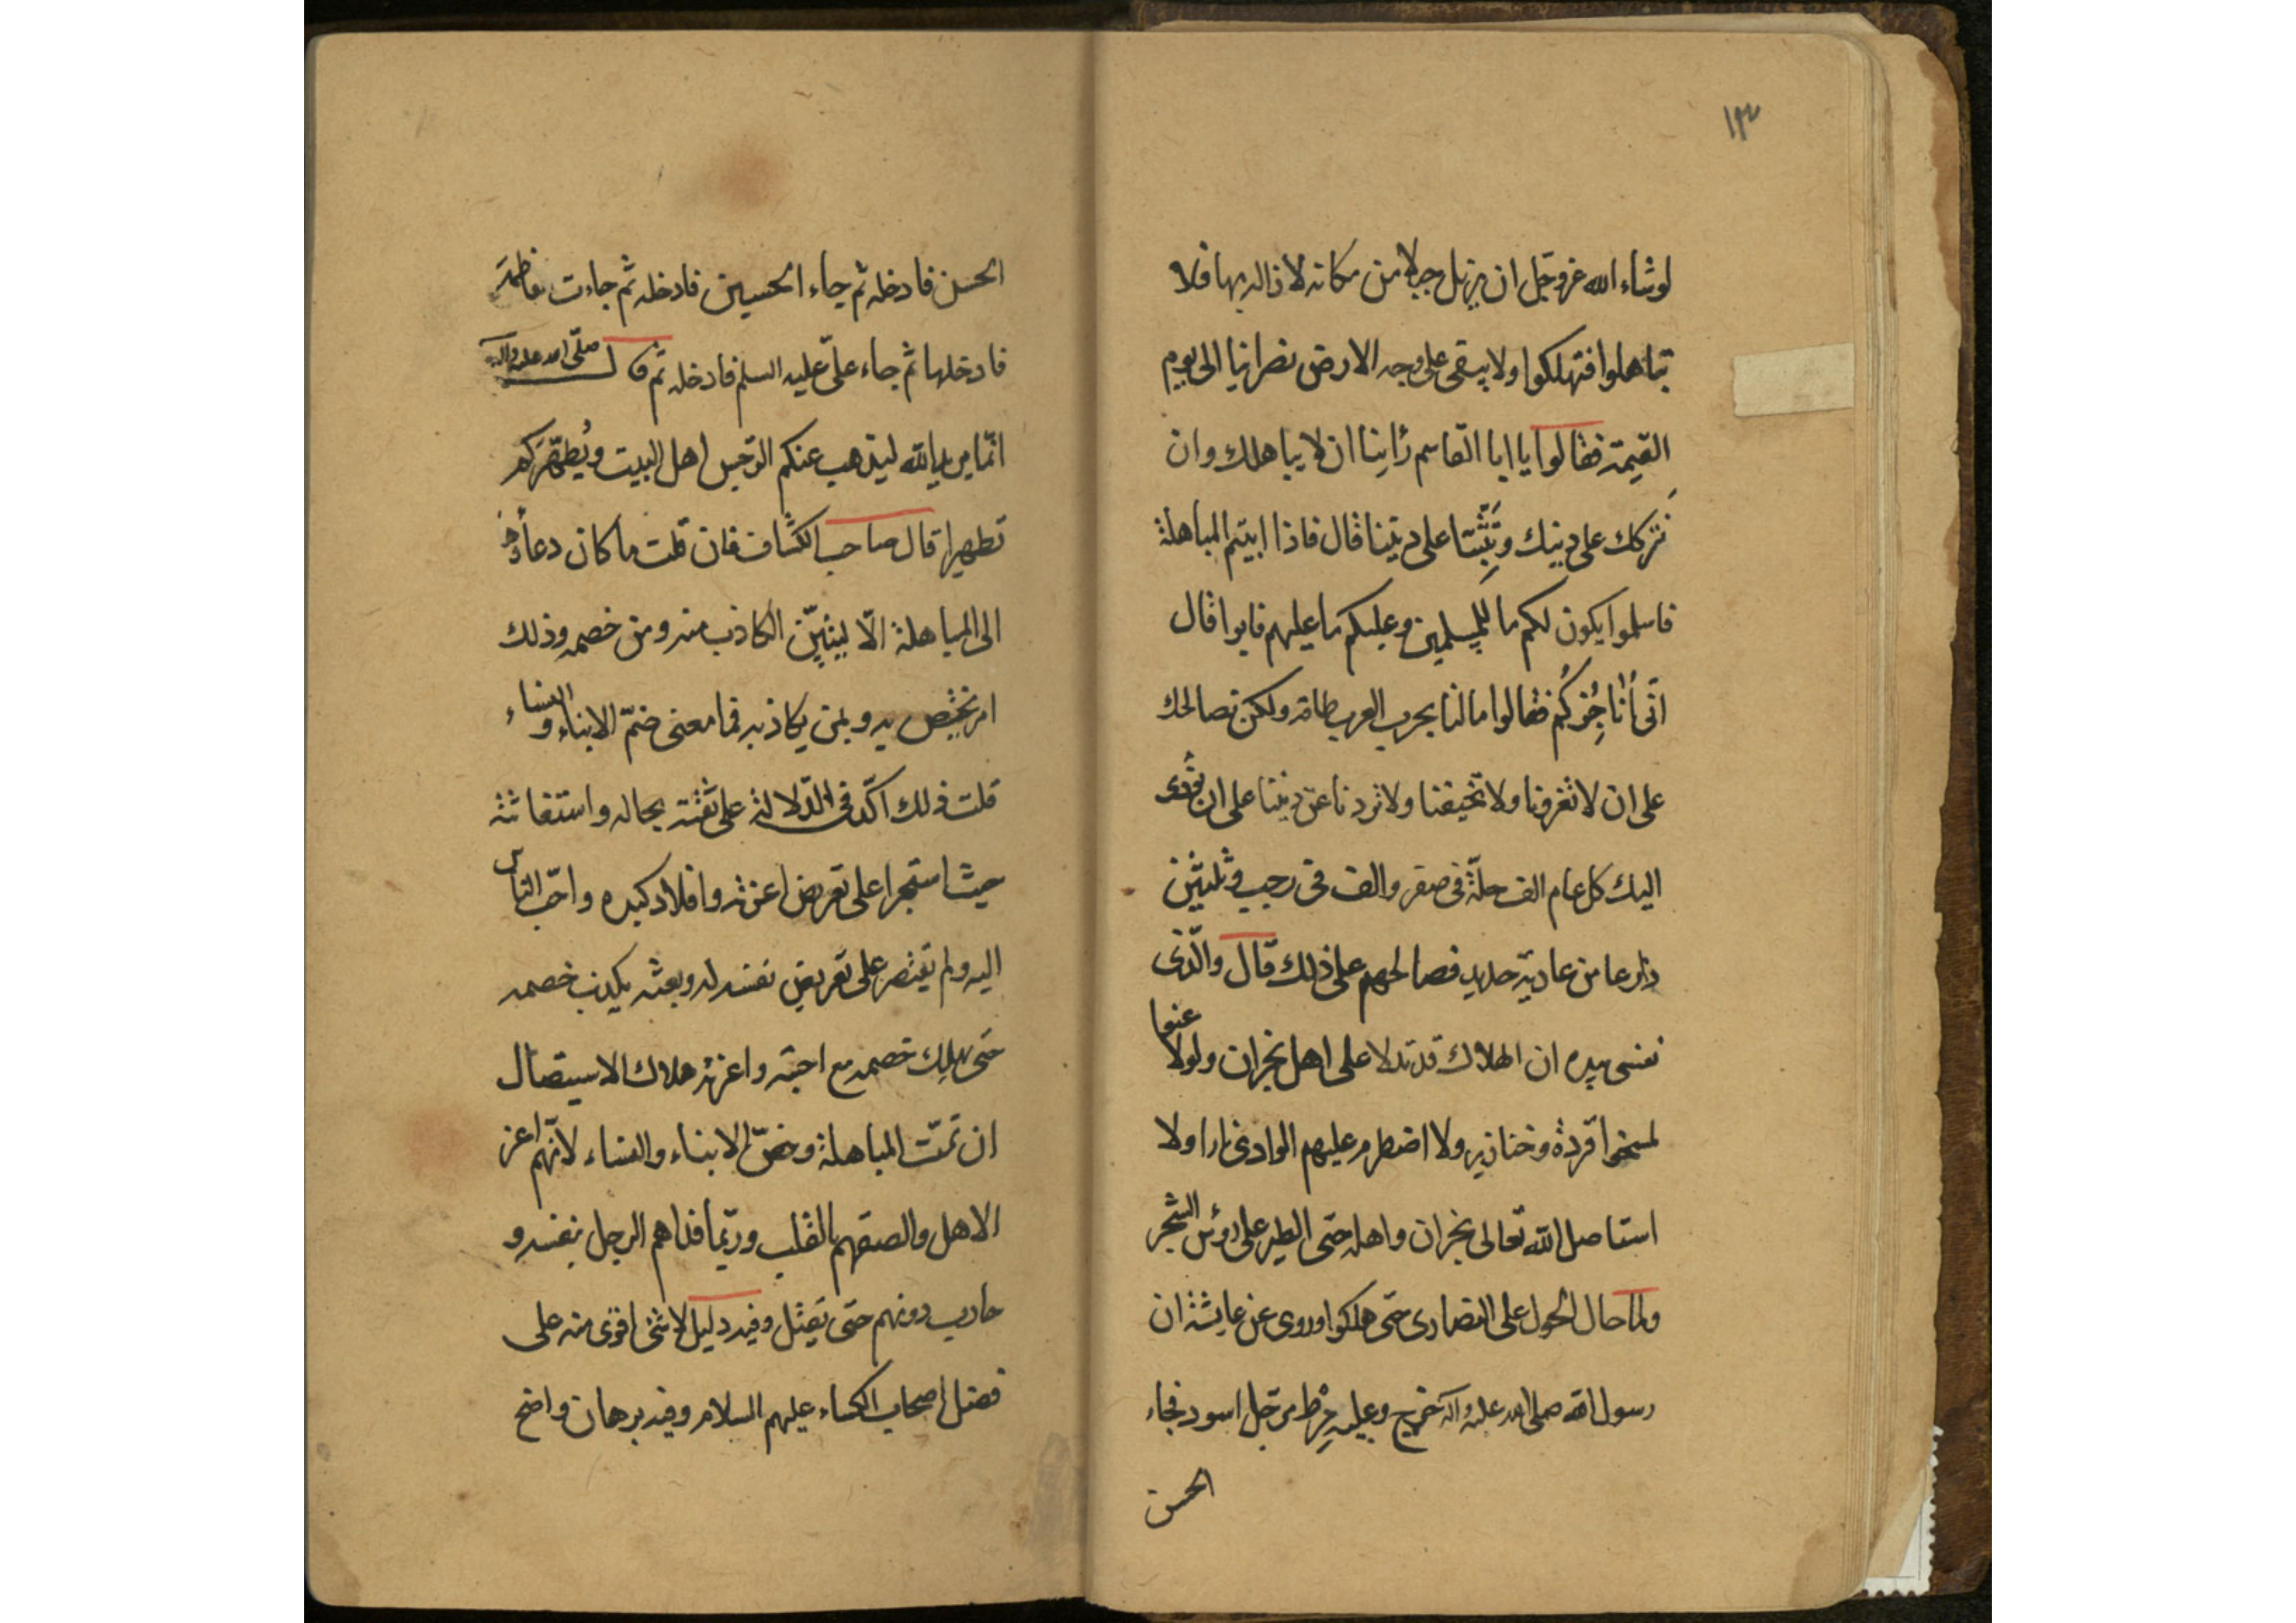 ١٣
لو شاء الله عز وجل ان يزيل جبلا من مكانه لازاله بها فلا
تباهلوا فتهلكوا ولا يبقى على وجه الارض نصرانيا الى يوم
القيمة فقالوا يا ابا القاسم رأينا ان لا يباهلك وان
نتركك على دينك ونثبت على ديننا قال فاذا ابيتم المباهلة
فاسلموا يكون لكم ما للمسلمين وعليكم ما عليهم فابوا قال
انى اناجزكم فقالوا ما لنا بحرب العرب طاقة ولكن نصالحك
على ان لا تغزونا ولا تخيفنا ولا تردنا عن ديننا على ان نؤدى
اليك كل عام الف حلة فى صفر والف فى رجب وثلثين
درعا من عادية حديد فصالحهم على ذلك قال والّذى
نفسى بيده ان الهلاك قد تدلا على اهل نجران ولولا عنوا
لمسخوا قردة وخنازير ولا اضطرم عليهم الوادى نارا ولا
استاصل الله تعالى نجران واهله حتى الطير على رؤس الشجر
ولما حال الحول على النصارى حتى هلكوا وروى عن عايشة ان
رسول الله صلى الله عليه وآله خرج وعليه مرط مرجل اسود فجاء
الحسن
الحسن فادخله ثم جاء الحسين فادخله ثم جاءت فاطمة
فادخلها ثم جاء علىّ عليه السلم فادخله ثم قال صلّى الله عليه وآله
انّما يريد الله ليذهب عنكم الرّجس اهل البيت ويُطهّرَكم
تطهيرا قال صاحب الكشاف فان قلت ما كان دعاؤه
الى المباهلة الّا ليتبيّن الكاذب منه ومن خصمه وذلك
امر يختص به وبمن يكاذبه فما معنى ضمّ الابناء والنساء
قلت ذلك اكّد فى الدّلالة على ثقته بحاله واستقانته
حيث استجرا على تعريض اعزته وافلاذ كبده واحّب الناس
اليه ولم يقتصر على تعريض نفسه له وبعثه بكذب خصمه
حتى يهلك خصمه مع احبته واعزته هلاك الاستيصال
ان تمّت المباهلة وخصّ الابناء والنساء لانّهم اعز
الاهل والصقهم بالقلب وربّما فداهم الرجل بنفسه و
حارب دونهم حتى يقتل وفيه دليل لا شئ اقوى منه على
فضل اصحاب الكساء عليهم السلام وفيه برهان واضح